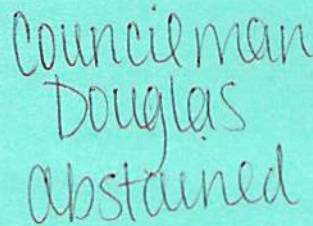 Councilman
Douglas
abstained